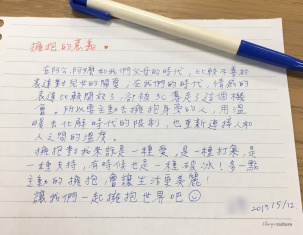 擁抱的意義
在阿公、阿嬤和我們父母的時代，比較不善於
表達對兒女的關愛，在我們的時代，情感的
表達比較開放了，卻被3C奪走了這個機
會。所以需主動去擁抱身旁的人，用溫
暖去化解時代的限制，也重新連接人和
人之間的溫度。
擁抱對我來說是一種愛，是一種打氣，是
一種支持，有時候也是一種破冰！多一點
主動的擁抱，會讓生活更美麗！
讓我們一起擁抱世界吧
2019 15/12